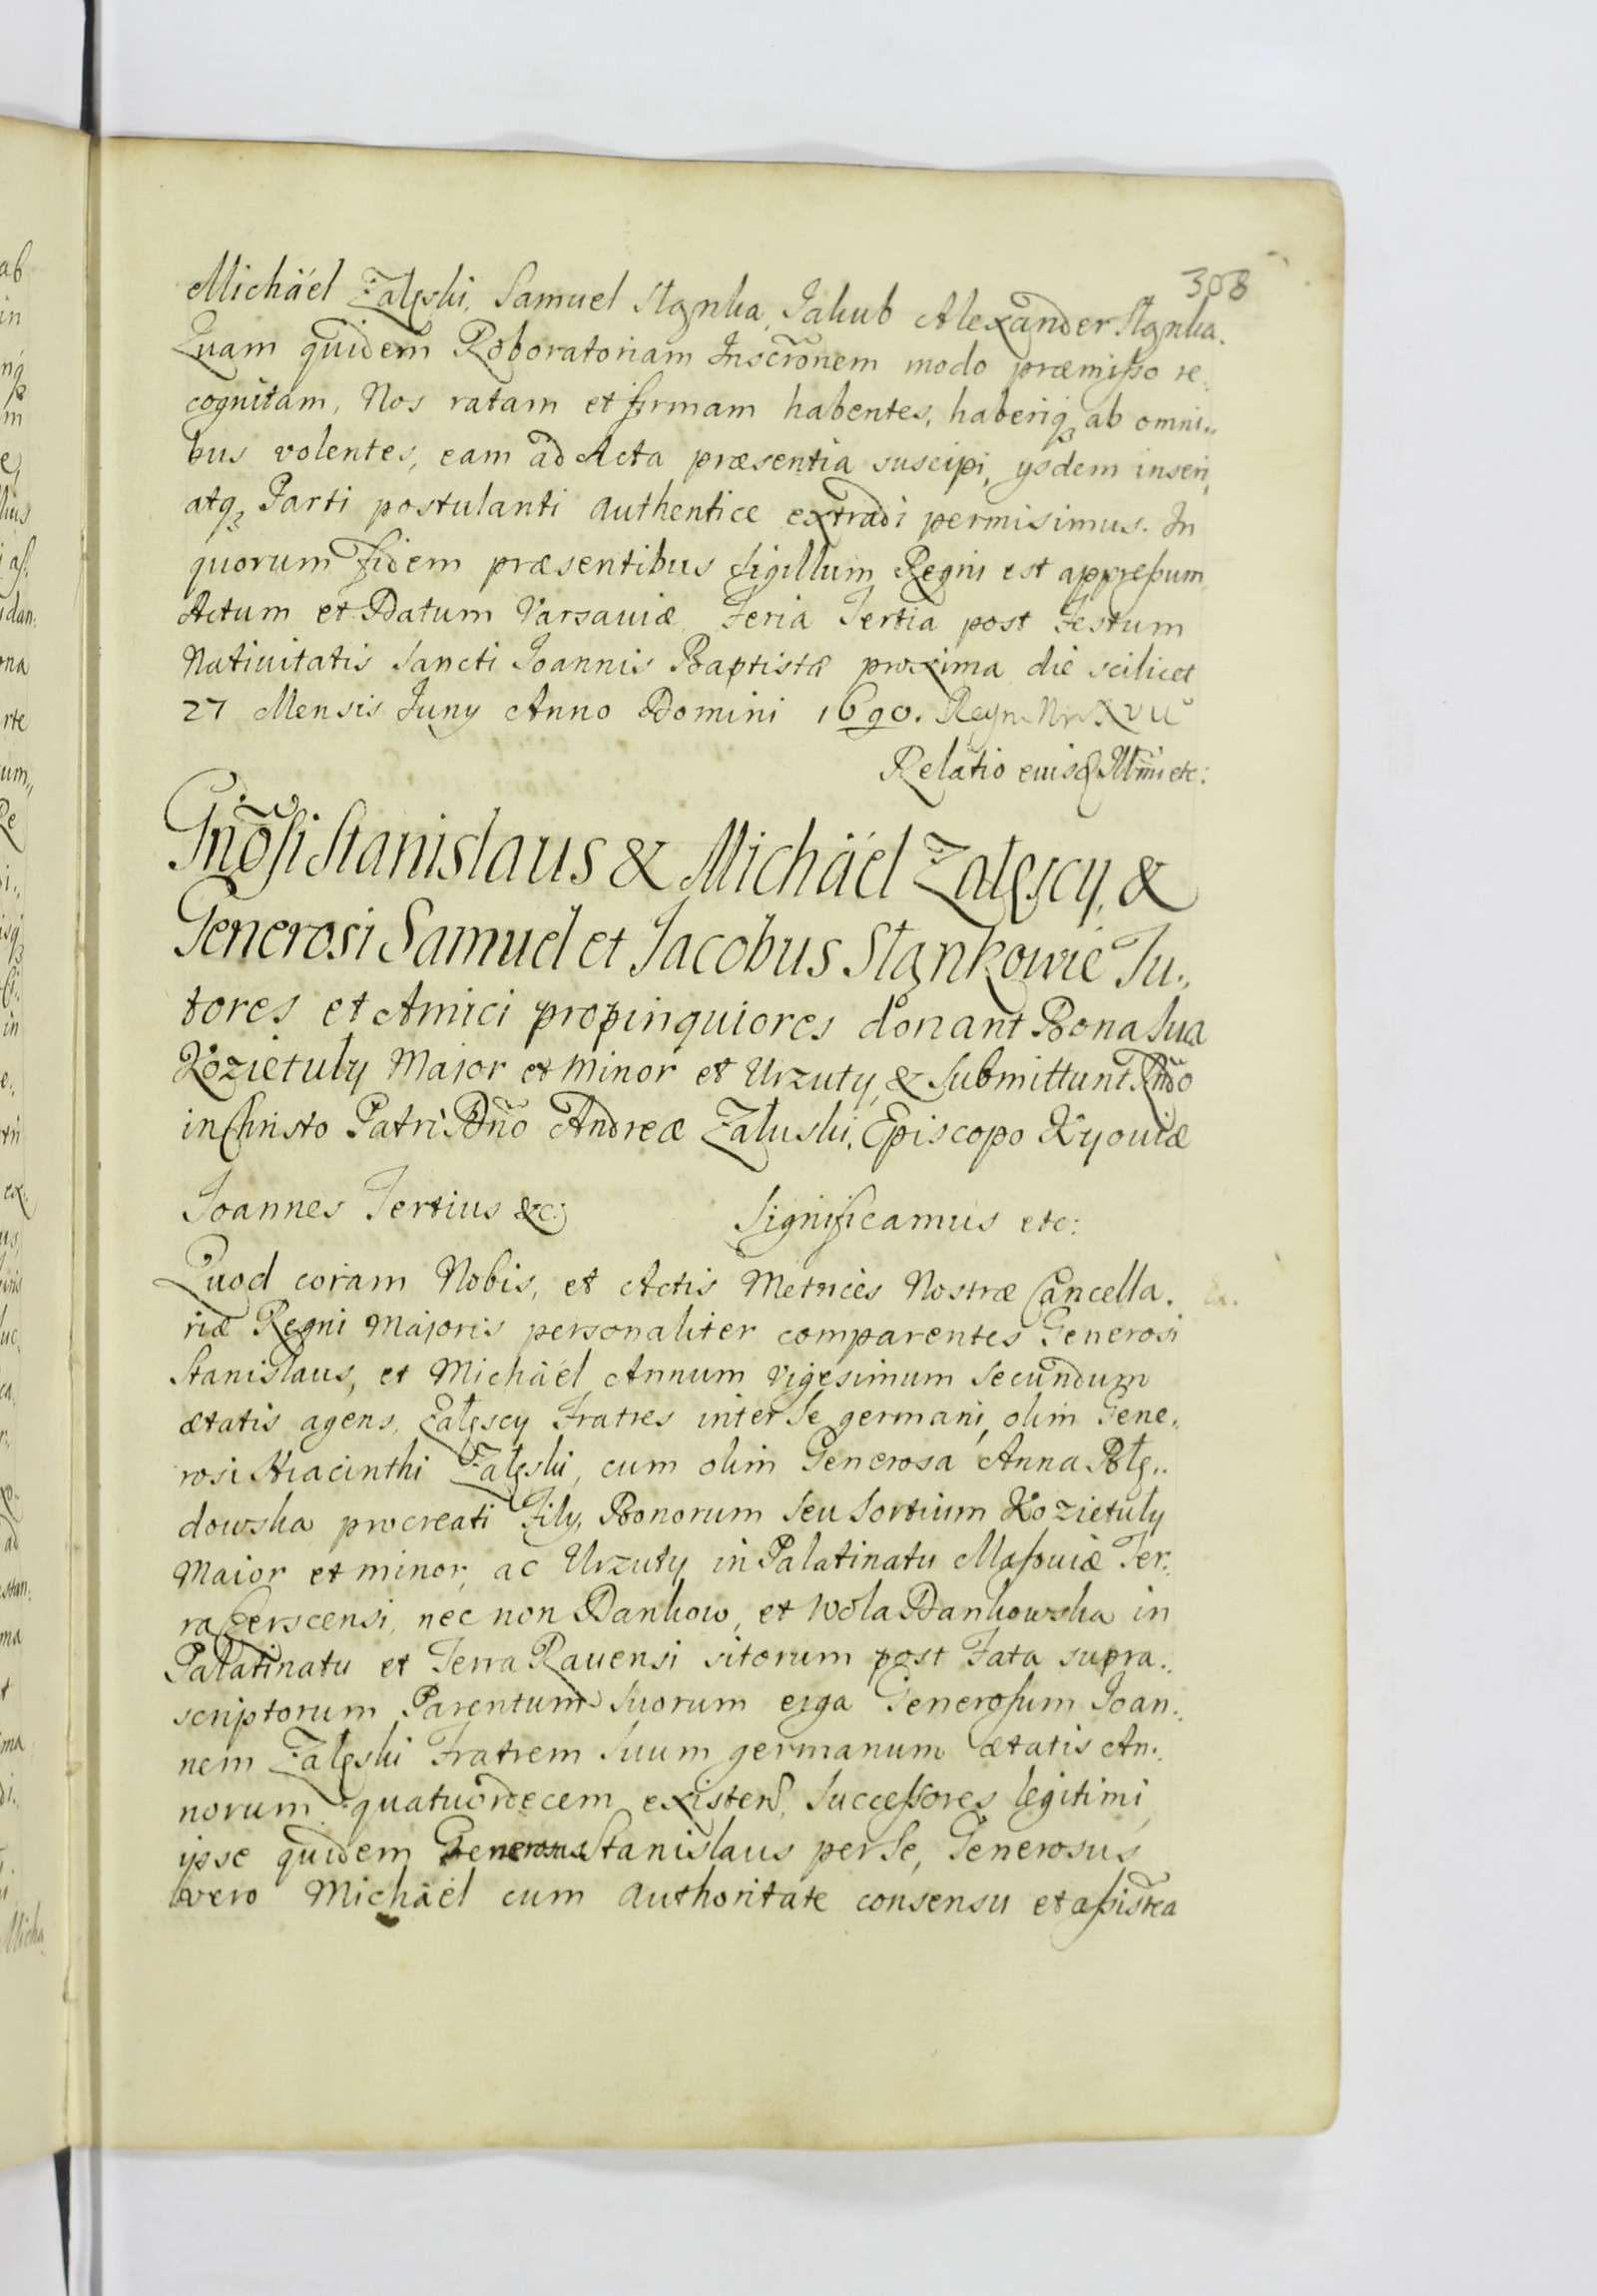 308
Michäel Załęski, Samuel Stąnka, Jakub Alexander Stąnka.
Quam quidem Roboratoriam Inscrõnem modo præmisso re„
cognitam, Nos ratam et firmam habentes, haberiq₃ ab omni„
bus volentes, eam ad Acta præsentia suscipi, ysdem inseri,
atq₃ Parti postulanti authentice extradi permisimus. In
quorum fidem præsentibus Sigillum Regni est appressum
Actum et Datum Varsaviæ Feria Tertia post Festum
Nativitatis Sancti Joannis Baptistæ proxima die scilicet
27 Mensis Juny Anno Domini 1690. Regni Nri XVII
Relatio eiusd Illmi etc:
Gnõsi Stanislaus & Michäel Załęscy, &
Generosi Samuel et Jacobus Stąnkowie Tu„
tores et Amici propinquiores donant Bona Sua
Kozietuły Maior et Minor et Urzuty, & Submittunt Rndo
in Christo Patri Dño Andreæ Załuski, Episcopo Kyoviæ
Joannes Tertius &c: Significamus etc:
Quod coram Nobis, et Actis Metrices Nostræ Cancella„
riæ Regni Maioris personaliter comparentes Generosi
Stanislaus, et Michäel Annum vigesimum Secundum
ætatis agens, Załęscy Fratres inter Se germani, olim Gene„
rosi Hiacinthi Załęski, cum olim Generosa Anna Błę„
dowska procreati Fily, Bonorum Seu Sortium Kozietuły
Maior et minor, ac Urzuty in Palatinatu Masoviæ Ter„
ra Czerscensi, nec non Dankow, et Wola Dankowska in
Palatinatu et Terra Ravensi sitorum post Fata supra„
scriptorum Parentum Suorum erga Generosum Joan„
nem Załęski Fratrem Suum germanum ætatis An„
norum quatuordecem existen̄, Successores legitimi,
ipse quidem Generosus Stanislaus per Se, Generosus
vero Michäel cum authoritate consensu et assist̃ea